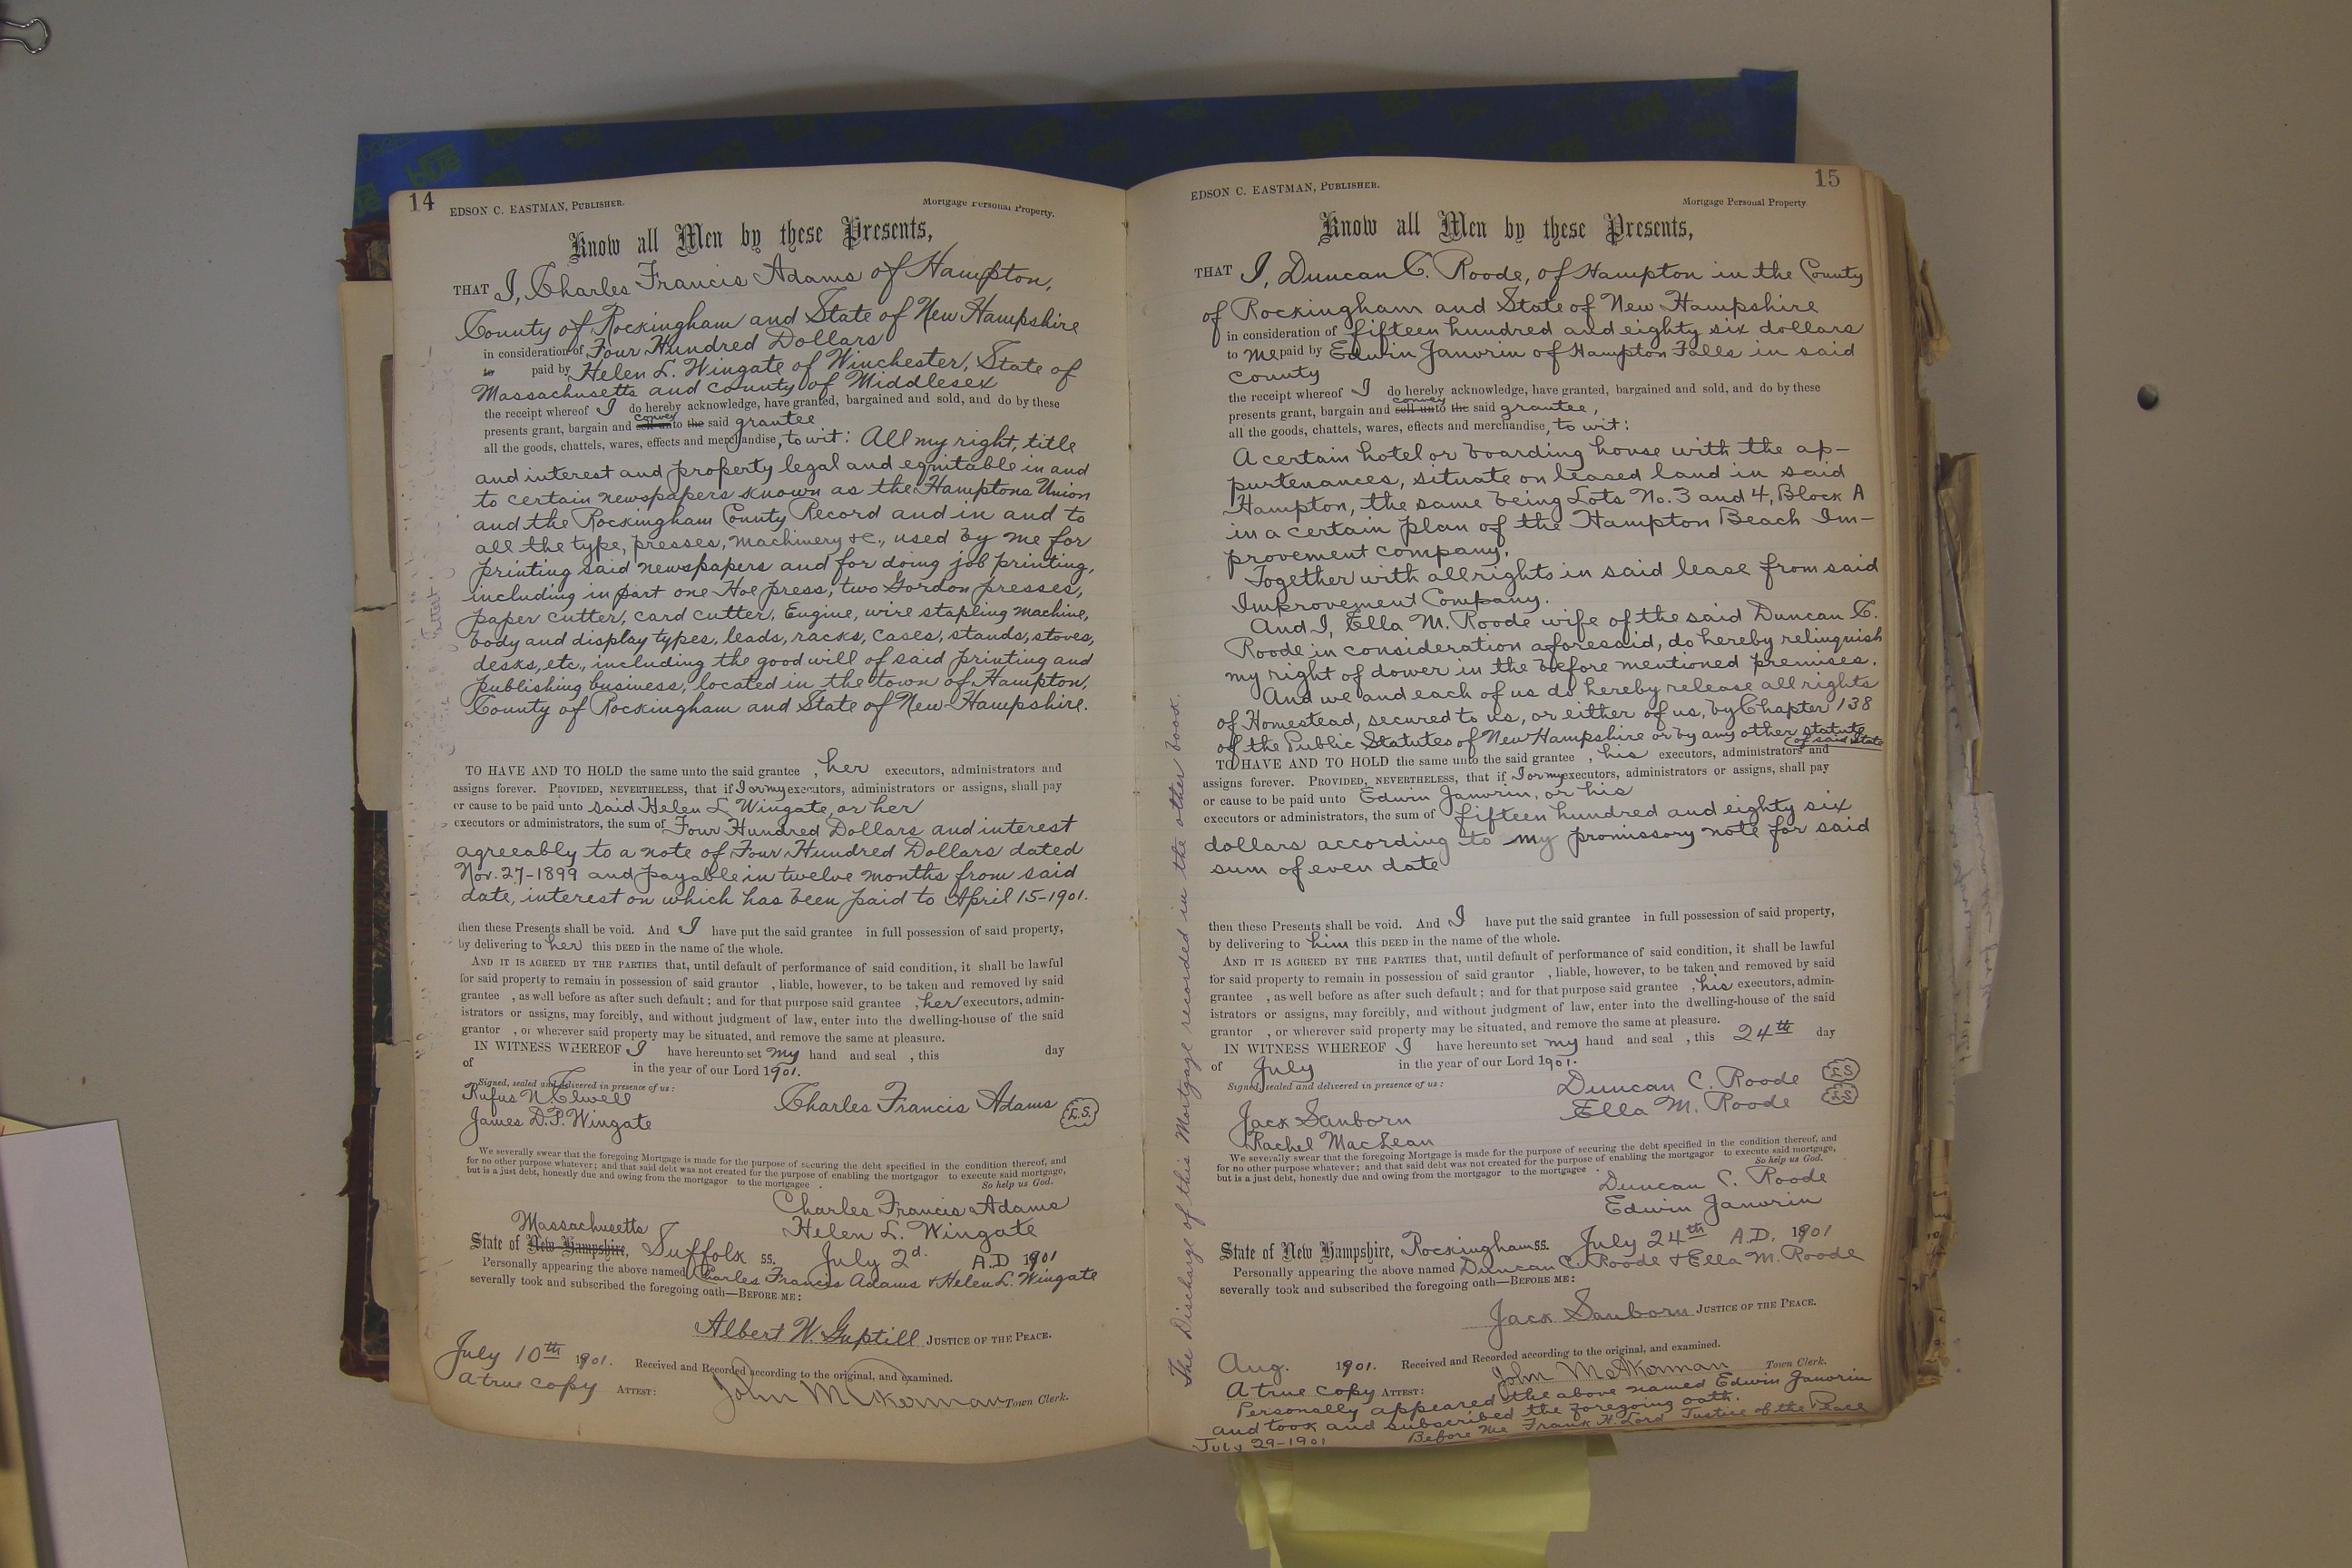 14 EDSON C. EASTMAN, PUBLISHER. Mortgage Personal Property.
Know all Men by these Presents,
THAT I, Charles Francis Adams of Hampton,
County of Rockingham and State of New Hampshire
in consideration of Four Hundred Dollars
to paid by Helen L. Wingate of Winchester, State of
Massachusetts and county of Middlesex
the receipt whereof I do hereby acknowledge, have granted, bargained and sold, and do by these
convey
presents grant, bargain and sell unto the said grantee
all the goods, chattels, wares, effects and merchandise, to wit: All my right, title
and interest and property legal and equitable in and
to certain newspapers known as the Hamptons Union
and the Rockingham County Record and in and to
all the type, presses, machinery &c., used by me for
printing said newspapers and for doing job printing,
including in part one Hoe press, two Gordon presses,
paper cutter, card cutter, Engine, wire stapling machine,
body and display types, leads, racks, cases, stands, stoves,
desks, etc., including the good will of said printing and
publishing business, located in the town of Hampton,
County of Rockingham and State of New-Hampshire.
TO HAVE AND TO HOLD the same unto the said grantee , her executors, administrators and
assigns forever. PROVIDED, NEVERTHELESS, that if I or my executors, administrators or assigns, shall pay
or cause to be paid unto said Helen L Wingate, or her
executors or administrators, the sum of Four Hundred Dollars and interest
agreeably to a note of Four Hundred Dollars dated
Nov. 27-1899 and payable in twelve months from said
date, interest on which has been paid to April 15-1901.
then these Presents shall be void. And I have put the said grantee in full possession of said property,
by delivering to her this DEED in the name of the whole.
AND IT IS AGREED BY THE PARTIES that, until default of performance of said condition, it shall be lawful
for said property to remain in possession of said grantor , liable, however, to be taken and removed by said
grantee , as well before as after such default; and for that purpose said grantee , her executors, admin-
istrators or assigns, may forcibly, and without judgment of law, enter into the dwelling-house of the said
grantor , or wherever said property may be situated, and remove the same at pleasure.
IN WITNESS WHEREOF I have hereunto set my hand and seal , this day
of in the year of our Lord 1901.
Signed, sealed and delivered in presence of us:
Rufus N. Elwell
Charles Francis Adams L.S.
James D.P. Wingate
We severally swear that the foregoing Mortgage is made for the purpose of securing the debt specified in the condition thereof, and
for no other purpose whatever; and that said debt was not created for the purpose of enabling the mortgagor to execute said mortgage,
but is a just debt, honestly due and owing from the mortgagor to the mortgagee . So help us God.
Charles Francis Adams
Helen L. Wingate
Massachusetts
State of New Hampshire, Suffolk ss. July 2d. A.D 1901
Personally appearing the above named Charles Francis Adams & Helen L. Wingate
severally took and subscribed the foregoing oath—BEFORE ME:
Albert W. Guptill JUSTICE OF THE PEACE.
July 10th 1901. Received and Recorded according to the original, and examined.
A true copy ATTEST: John M Akerman Town Clerk.
EDSON C. EASTMAN, PUBLISHER. Mortgage Personal Property 15
Know all Men by these Presents,
THAT I, Duncan C. Roode, of Hampton in the County
of Rockingham and State of New Hampshire
in consideration of fifteen hundred and eighty six dollars
to me paid by Edwin Janvrin of Hampton Falls in said
County
the receipt whereof I do hereby acknowledge, have granted, bargained and sold, and do by these
convey
presents grant, bargain and sell unto the said grantee,
all the goods, chattels, wares, effects and merchandise, to wit:
A certain hotel or boarding house with the ap-
purtenances, situate on leased land in said
Hampton, the same being Lots No. 3 and 4, Block A
in a certain plan of the Hampton Beach Im-
provement company.
Together with all rights in said lease from said
Improvement Company.
And I, Ella M. Roode wife of the said Duncan C.
Roode in consideration aforesaid, do hereby relinquish
my right of dower in the before mentioned premises.
And we and each of us do hereby release all rights
of Homestead, secured to us, or either of us, by Chapter 138
of the Public Statutes of New Hampshire or by any other statute
of said State
TO HAVE AND TO HOLD the same unto the said grantee , his executors, administrators and
assigns forever. PROVIDED, NEVERTHELESS, that if I or my executors, administrators or assigns, shall pay
or cause to be paid unto Edwin Janvrin, or his
executors or administrators, the sum of fifteen hundred and eighty six
dollars according to my promissory note for said
sum of even date
then these Presents shall be void. And I have put the said grantee in full possession of said property,
by delivering to him this DEED in the name of the whole.
AND IT IS AGREED BY THE PARTIES that, until default of performance of said condition, it shall be lawful
for said property to remain in possession of said grantor , liable, however, to be taken and removed by said
grantee , as well before as after such default; and for that purpose said grantee , his executors, admin-
istrators or assigns, may forcibly, and without judgment of law, enter into the dwelling-house of the said
grantor , or wherever said property may be situated, and remove the same at pleasure.
IN WITNESS WHEREOF I have hereunto set my hand and seal , this 24th day
of July in the year of our Lord 1901.
Signed, sealed and delivered in presence of us:
Duncan C. Roode L.S
Ella M. Roode L.S
Jack Sanborn
Rachel MacLean
We severally swear that the foregoing Mortgage is made for the purpose of securing the debt specified in the condition thereof, and
for no other purpose whatever; and that said debt was not created for the purpose of enabling the mortgagor to execute said mortgage,
but is a just debt, honestly due and owing from the mortgagor to the mortgagee . So help us God.
Duncan C. Roode
Edwin Janvrin
State of New Hampshire, Rockingham ss. July 24th A.D. 1901
Personally appearing the above named Duncan C. Roode & Ella M. Roode
severally took and subscribed the foregoing oath—BEFORE ME:
Jack Sanborn JUSTICE OF THE PEACE.
Aug. 1901. Received and Recorded according to the original, and examined.
A true copy ATTEST: John M Akerman Town Clerk.
Personally appeared the above named Edwin Janvrin
and took and subscribed the foregoing oath.
July 29-1901 Before Me Frank H. Lord Justice of the Peace
The Discharge of this Mortgage recorded in the other book.